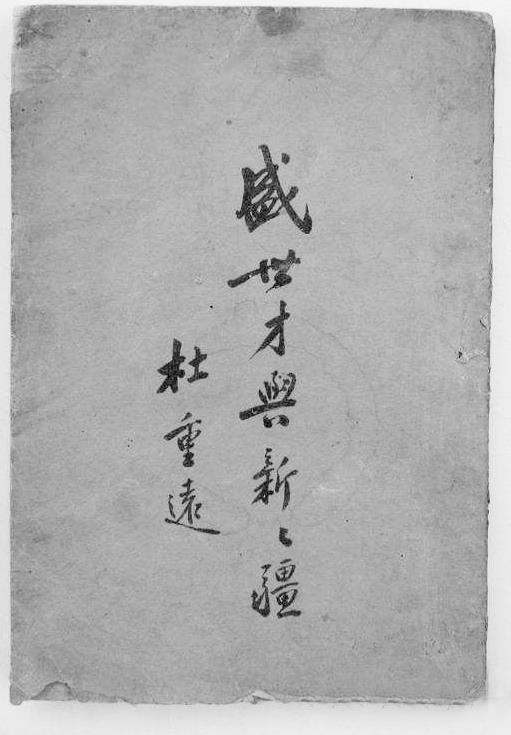 盛世才與新々疆
杜重遠